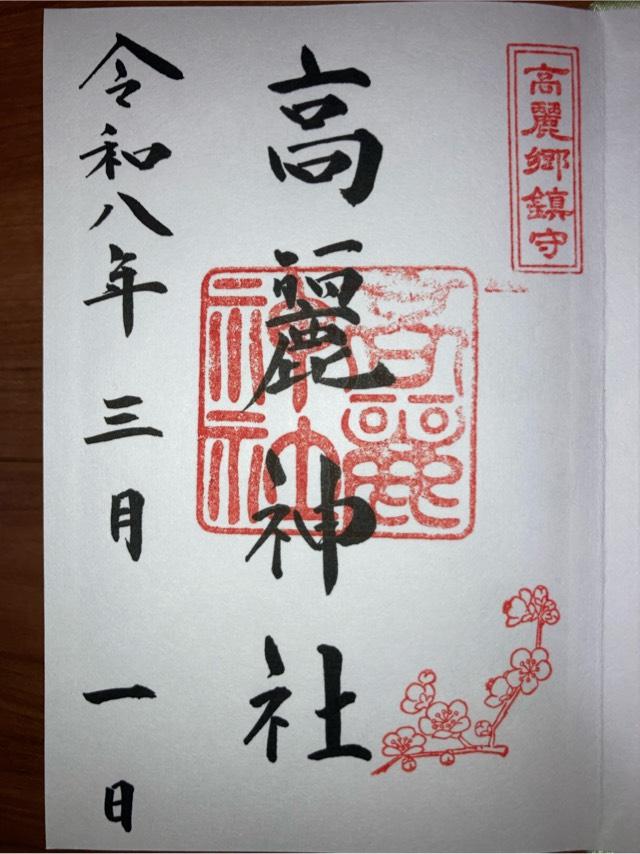 高麗郷鎮守
高麗神社
高麗神社
令和八年三月一日